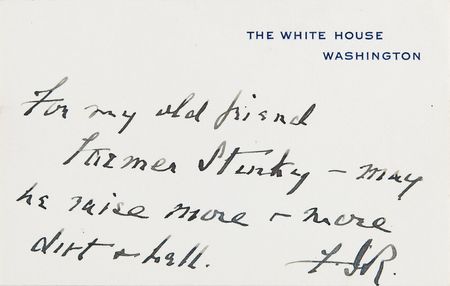 THE WHITE HOUSE
WASHINGTON
For my old friend
Farmer Stucky - may
he raise more + more
dirt + hell. F.D.R.